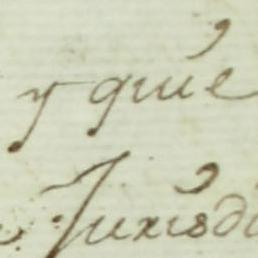 y que
Jurisdi